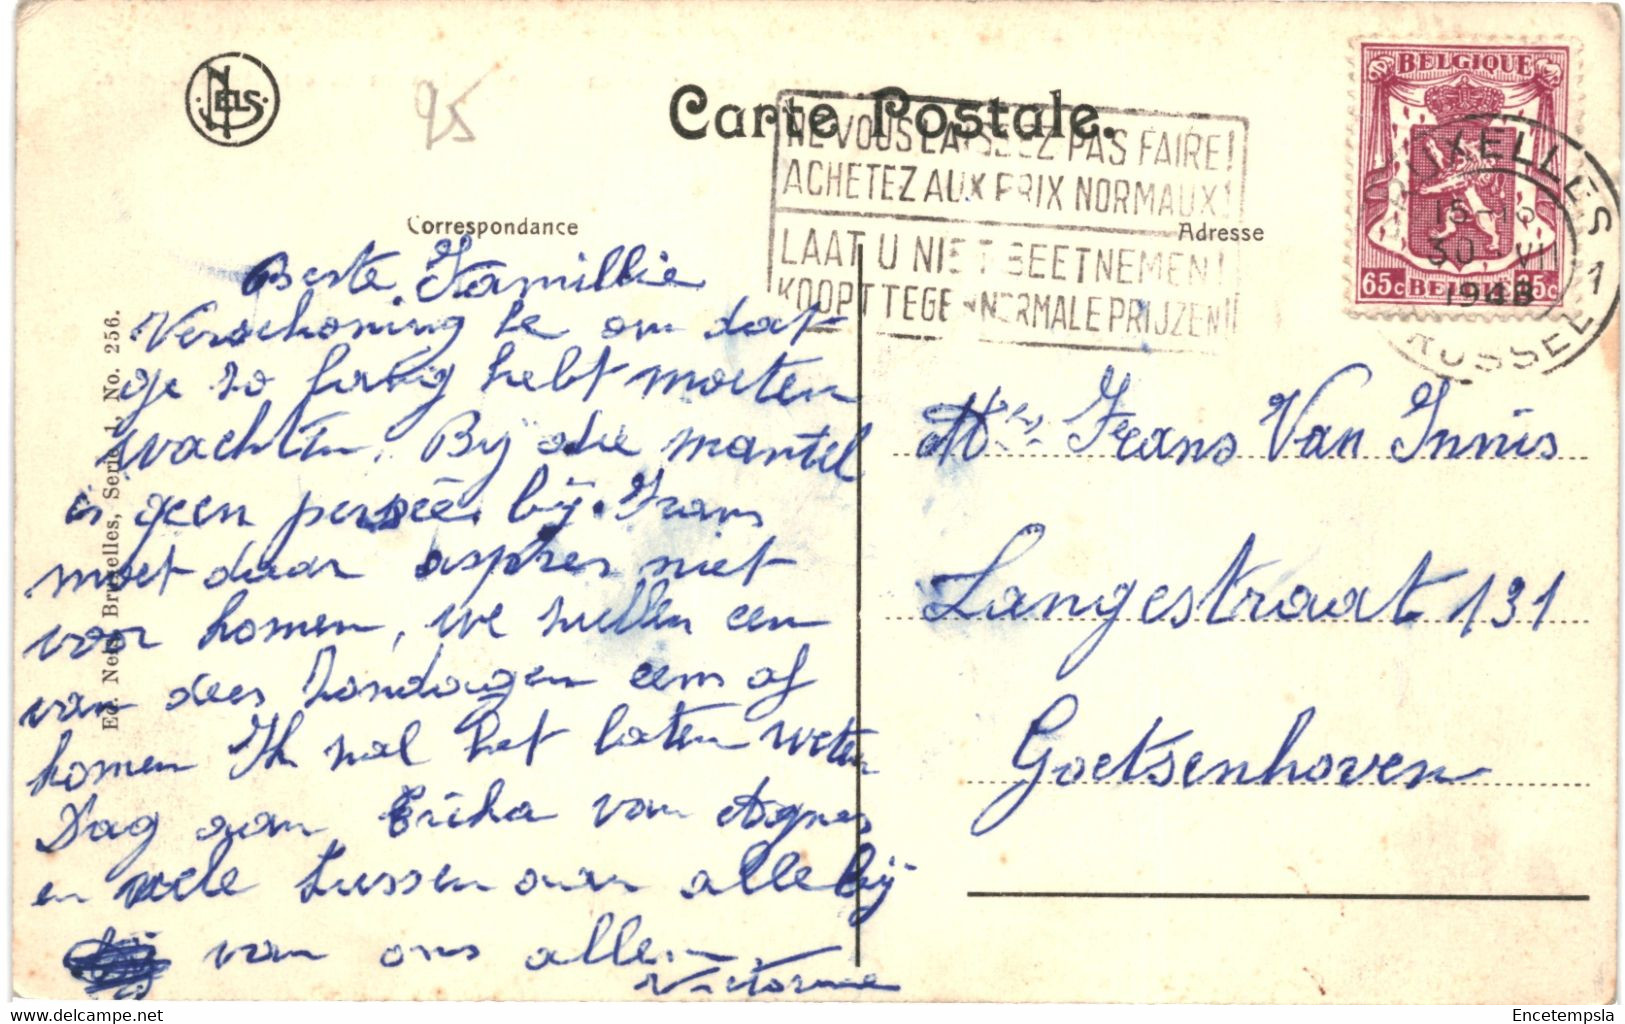 NELS
95
Carte Postale.
NE VOUS LAISSEZ PAS FAIRE!
ACHETEZ AUX PRIX NORMAUX!
LAAT U NIET BEETNEMEN!
KOOPT TEGEN NORMALE PRIJZEN!
BELGIQUE
65c BELGIË 65c
BRUXELLES 1
15-16
30 VII
1948
BRUSSEL
Correspondance
Adresse
Ed. Nels, Bruxelles, Serie 1, No. 256.
Beste Famillie
Verschoning he om dat
ge zo lang hebt moeten
wachten. Bij die mantel
is geen bij. Frans
moet daar aspres niet
voor komen, we zullen een
van dees zondagen eens af
komen Ik zal het laten weten
Dag aan Ericka van Agnes
en vele kussen aan allebij
van ons allen
Victorine
Frans Van Innis
Langestraat 131
Goetsenhoven
Encetempsla